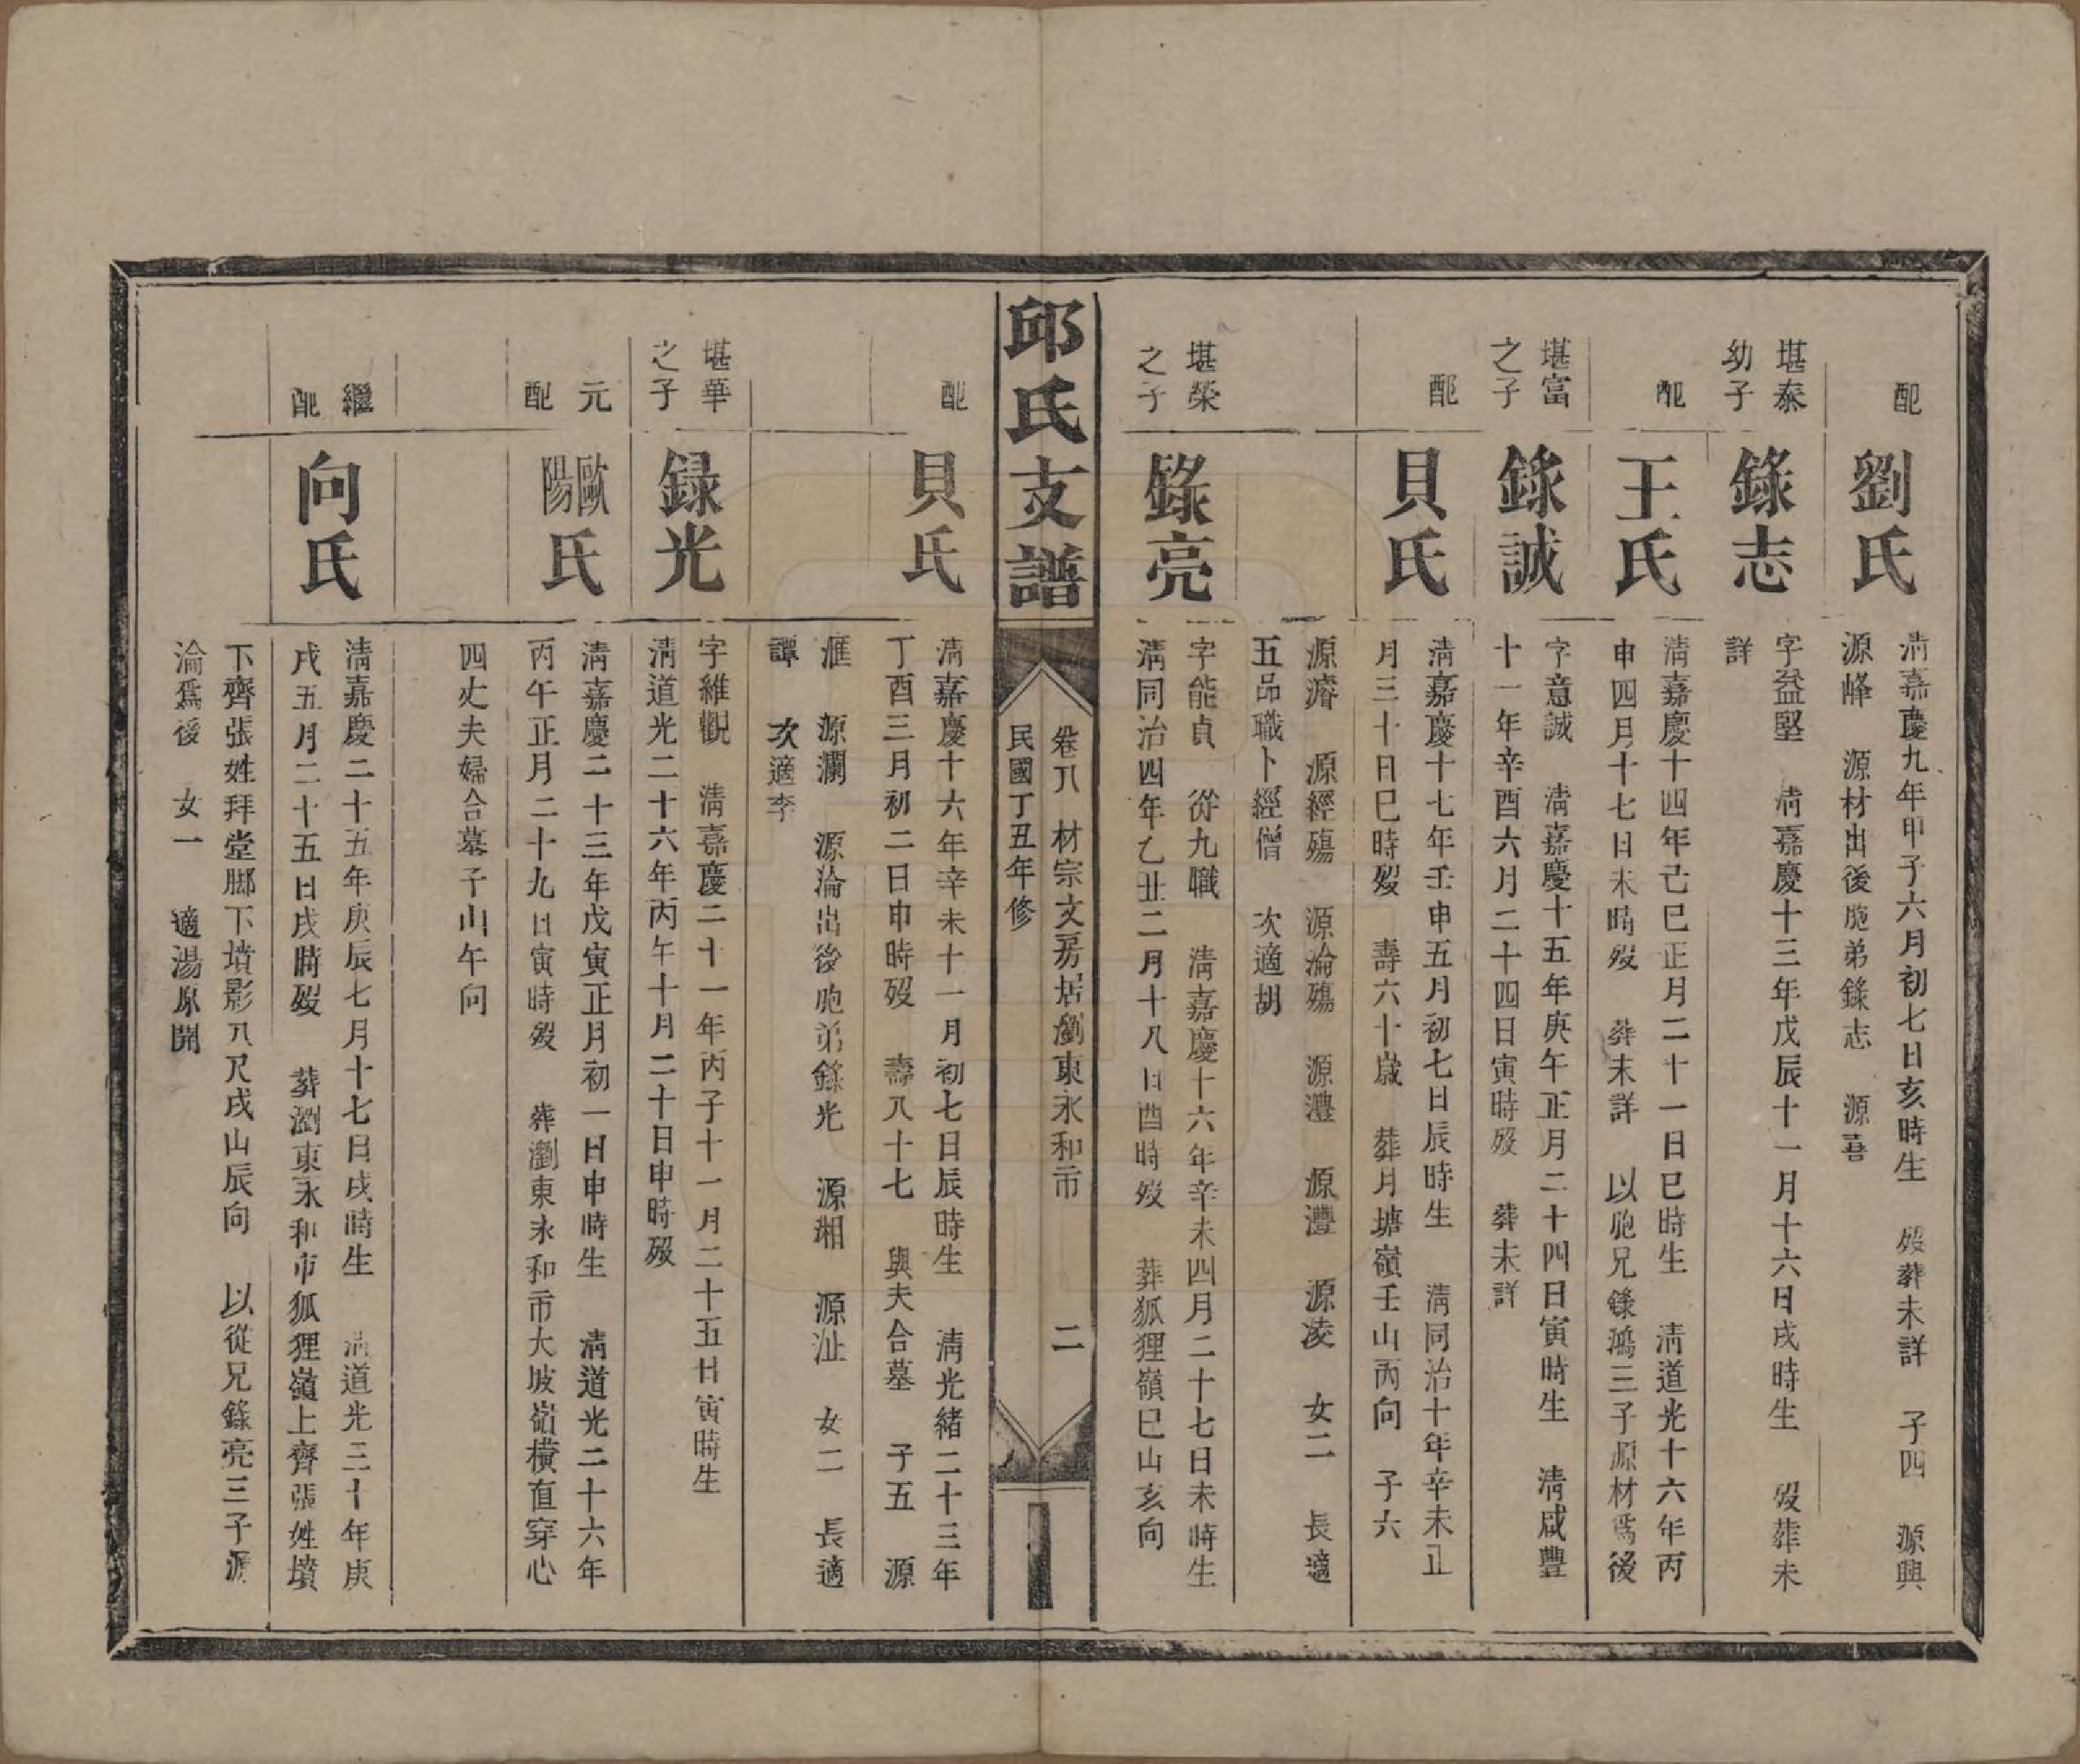 配
劉氏
清嘉慶九年甲子六月初七日亥時生　歿葬未詳　子四　源興
源峰　源材出後胞弟錄志　源喜
堪泰
幼子
錄志
字益堅　清嘉慶十三年戊辰十一月十六日戌時生　歿葬未
詳
配
王氏
清嘉慶十四年己巳正月二十一日巳時生　清道光十六年丙
申四月十七日未時歿　葬未詳　以胞兄錄鴻三子源材爲後
堪富
之子
錄誠
字意誠　清嘉慶十五年庚午正月二十四日寅時生　清咸豐
十一年辛酉六月二十四日寅時歿　葬未詳
配
貝氏
清嘉慶十七年壬申五月初七日辰時生　清同治十年辛未正
月三十日巳時歿　壽六十歲　葬月塘嶺壬山丙向　子六
源濬　源經殤　源淪殤　源澧　源灃　源淩　女二　長適
五品職卜經僧　次適胡
堪榮
之子
錄亮
字能貞　從九職　清嘉慶十六年辛未四月二十七日未時生
清同治四年乙丑二月十八日酉時歿　葬狐狸嶺巳山亥向
邱氏支譜
卷八　材宗文房居瀏東永和市　二
民國丁丑年修
配
貝氏
清嘉慶十六年辛未十一月初七日辰時生　清光緒二十三年
丁酉三月初二日申時歿　壽八十七　與夫合墓　子五　源
滙　源瀾　源淪出後胞弟錄光　源湘　源沚　女二　長適
譚　次適李
堪華
之子
録光
字維觀　清嘉慶二十一年丙子十一月二十五日寅時生
清道光二十六年丙午十月二十日申時歿
元
配
歐陽氏
清嘉慶二十三年戊寅正月初一日申時生　清道光二十六年
丙午正月二十九日寅時歿　葬瀏東永和市大坡嵧橫直穿心
四丈夫婦合墓子山午向
繼
配
向氏
清嘉慶二十五年庚辰七月十七日戌時生　清道光三十年庚
戌五月二十五日戌時歿　葬瀏東永和市狐狸嶺上齊張姓墳
下齊張姓拜堂腳下墳影八尺戌山辰向　以從兄錄亮三子源
淪爲後　女一　適湯原開